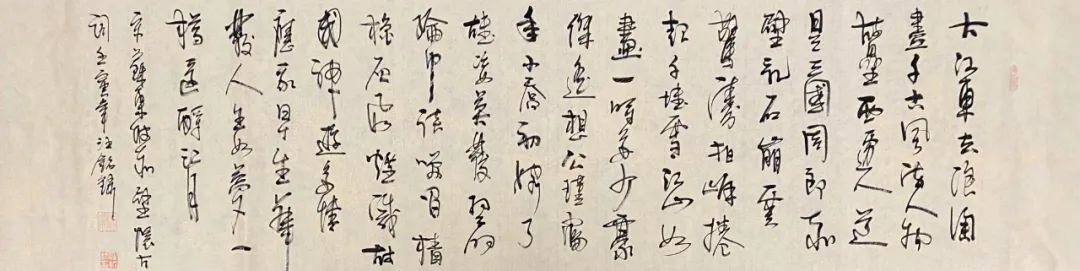 大江東去浪淘
盡千古風流人物
故壘西邊人道
是三國周郎赤
壁亂石崩雲
驚濤拍岸捲
起千堆雪江山如
畫一時多少豪
傑遙想公瑾當
年小喬初嫁了
雄姿英發羽扇
綸巾談笑間檣
櫓灰飛煙滅故
國神遊多情
應我早生華
髮人生如夢一
樽還酹江月
宋蘇東坡赤壁懷古
詞壬寅年汪銘